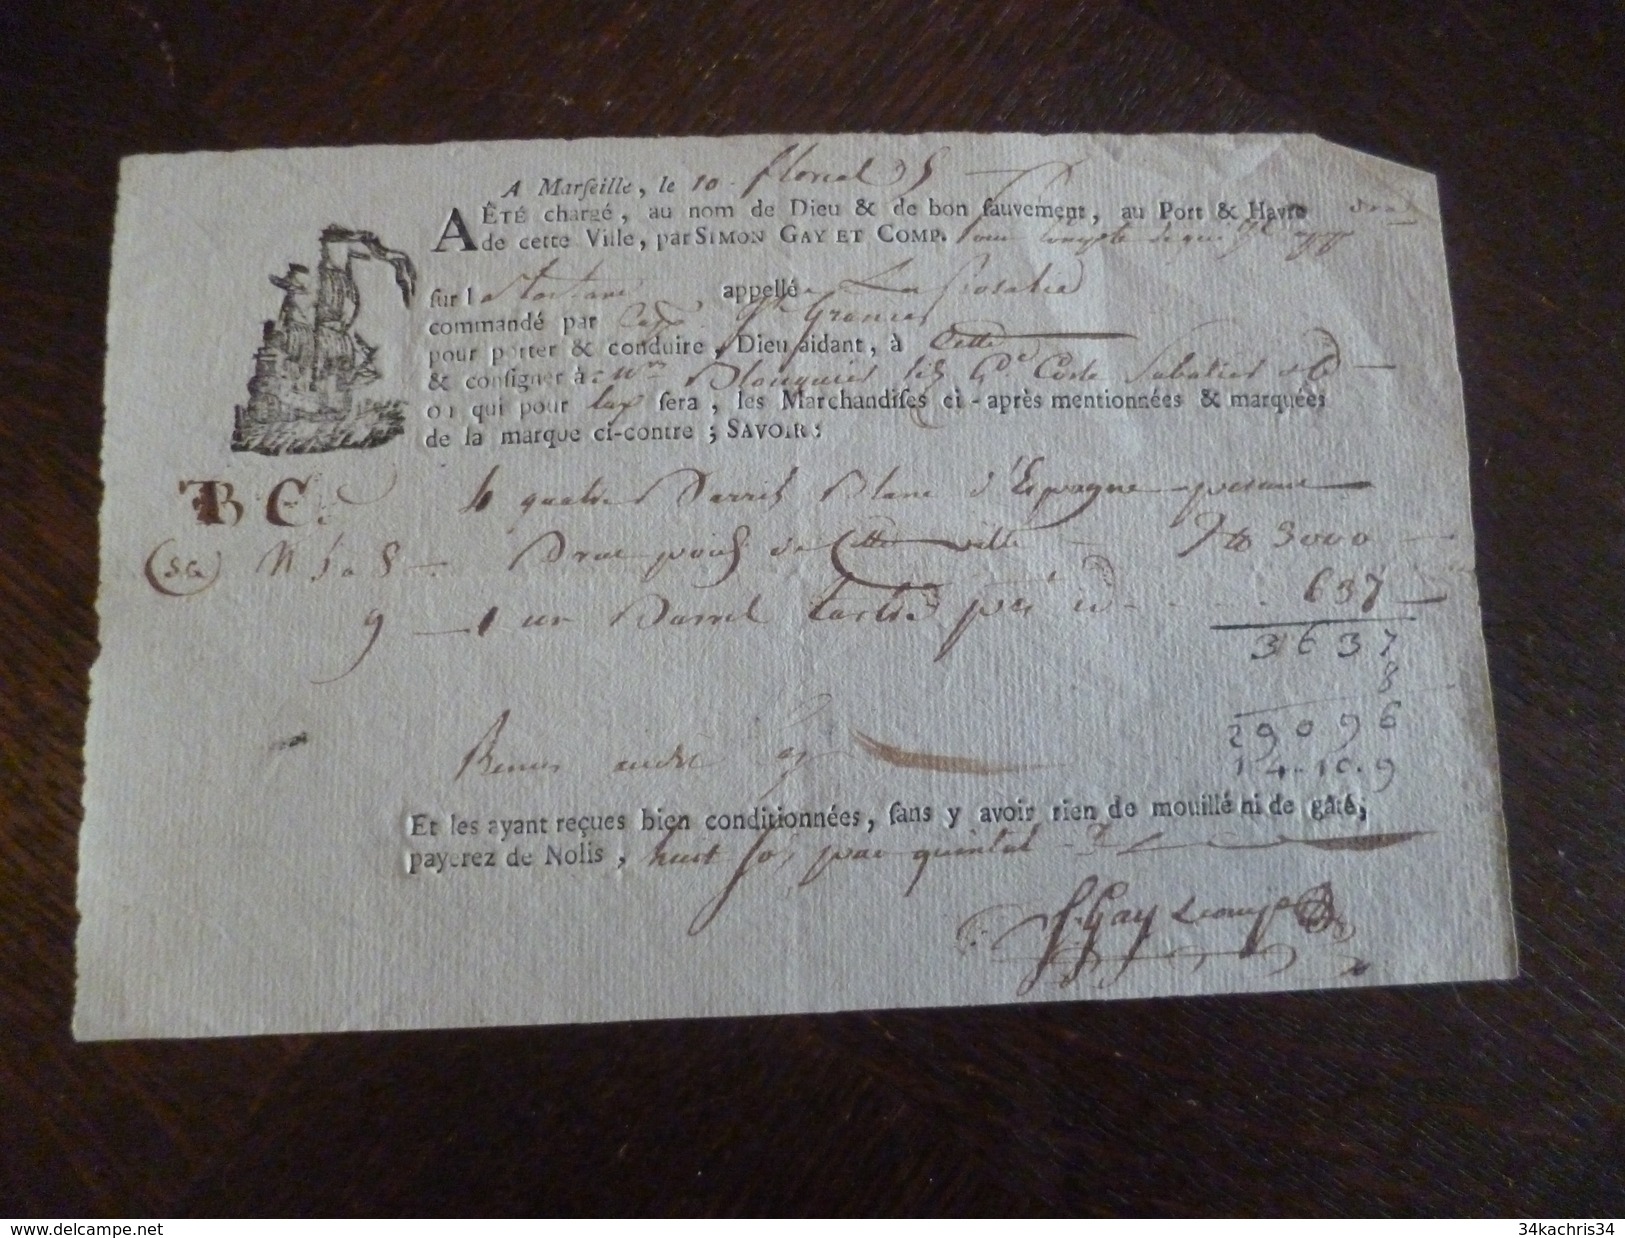 A Marſeille, le 10. floreal 5
A ÊTÉ chargé, au nom de Dieu & de bon ſauvement, au Port & Havre
de cette Ville, par SIMON GAY ET COMP. Pour Compte de qui
ſur la tartane appellée La Rosalie
commandé par Cap.
pour porter & conduire, Dieu aidant, à Cette
& conſigner à Mrs Blouquier fils Coste Sabatier & C
ou qui pour lux ſera, les Marchandiſes ci-après mentionnées & marquées
de la marque ci-contre ; SAVOIR :
BC 4 quatre Barrils Blanc d'Espagne pesant
N 5 a 8 Brut poids de Cette ville 3000
9 1 un Barril tartre id 637
3637
8
29096
14.10.9
Et les ayant reçues bien conditionnées, ſans y avoir rien de mouillé ni de gâté,
payerez de Nolis, huit sols par quintal
S. Gay & Comp
www.delcampe.net
34kachris34